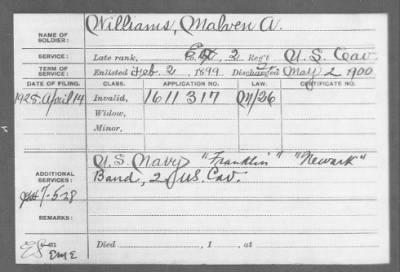 NAME OF SOLDIER: Williams, Malven A.
SERVICE: Late rank, 2 Reg't U.S. Cav
TERM OF SERVICE: Enlisted Feb. 2, 1899 Discharged May 2 1900
DATE OF FILING. CLASS. APPLICATION NO. CERTIFICATE NO.
1925 April 14 Invalid, 1611317
Widow,
Minor,
ADDITIONAL SERVICES: U.S. Navy "Franklin" "Newark"
Band, 2 U.S. Cav.
7-5-28
REMARKS:
Died , 1 , at